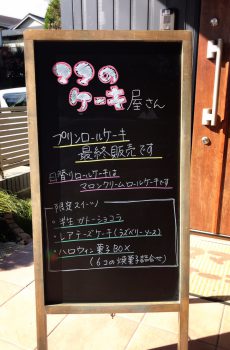 ママの
ケーキ屋さん
プリンロールケーキ
最終販売です
日替りロールケーキは
マロンクリームロールケーキです
限定スイーツ
・半生ガトーショコラ
・レアチーズケーキ(ラズベリーソース)
・ハロウィン菓子BOX
(6コの焼菓子詰合せ)